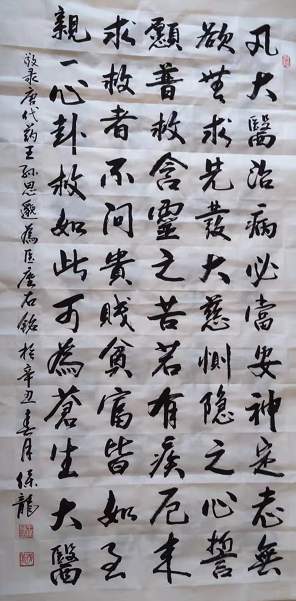 凡大醫治病必當安神定志無
欲無求先發大慈惻隱之心誓
願普救含靈之苦若有疾厄来
求救者不问貴賤貧富皆如至
親一心赴救如此可為蒼生大醫
敬录唐代药王孙思邈為医座右銘於辛丑春月保龍